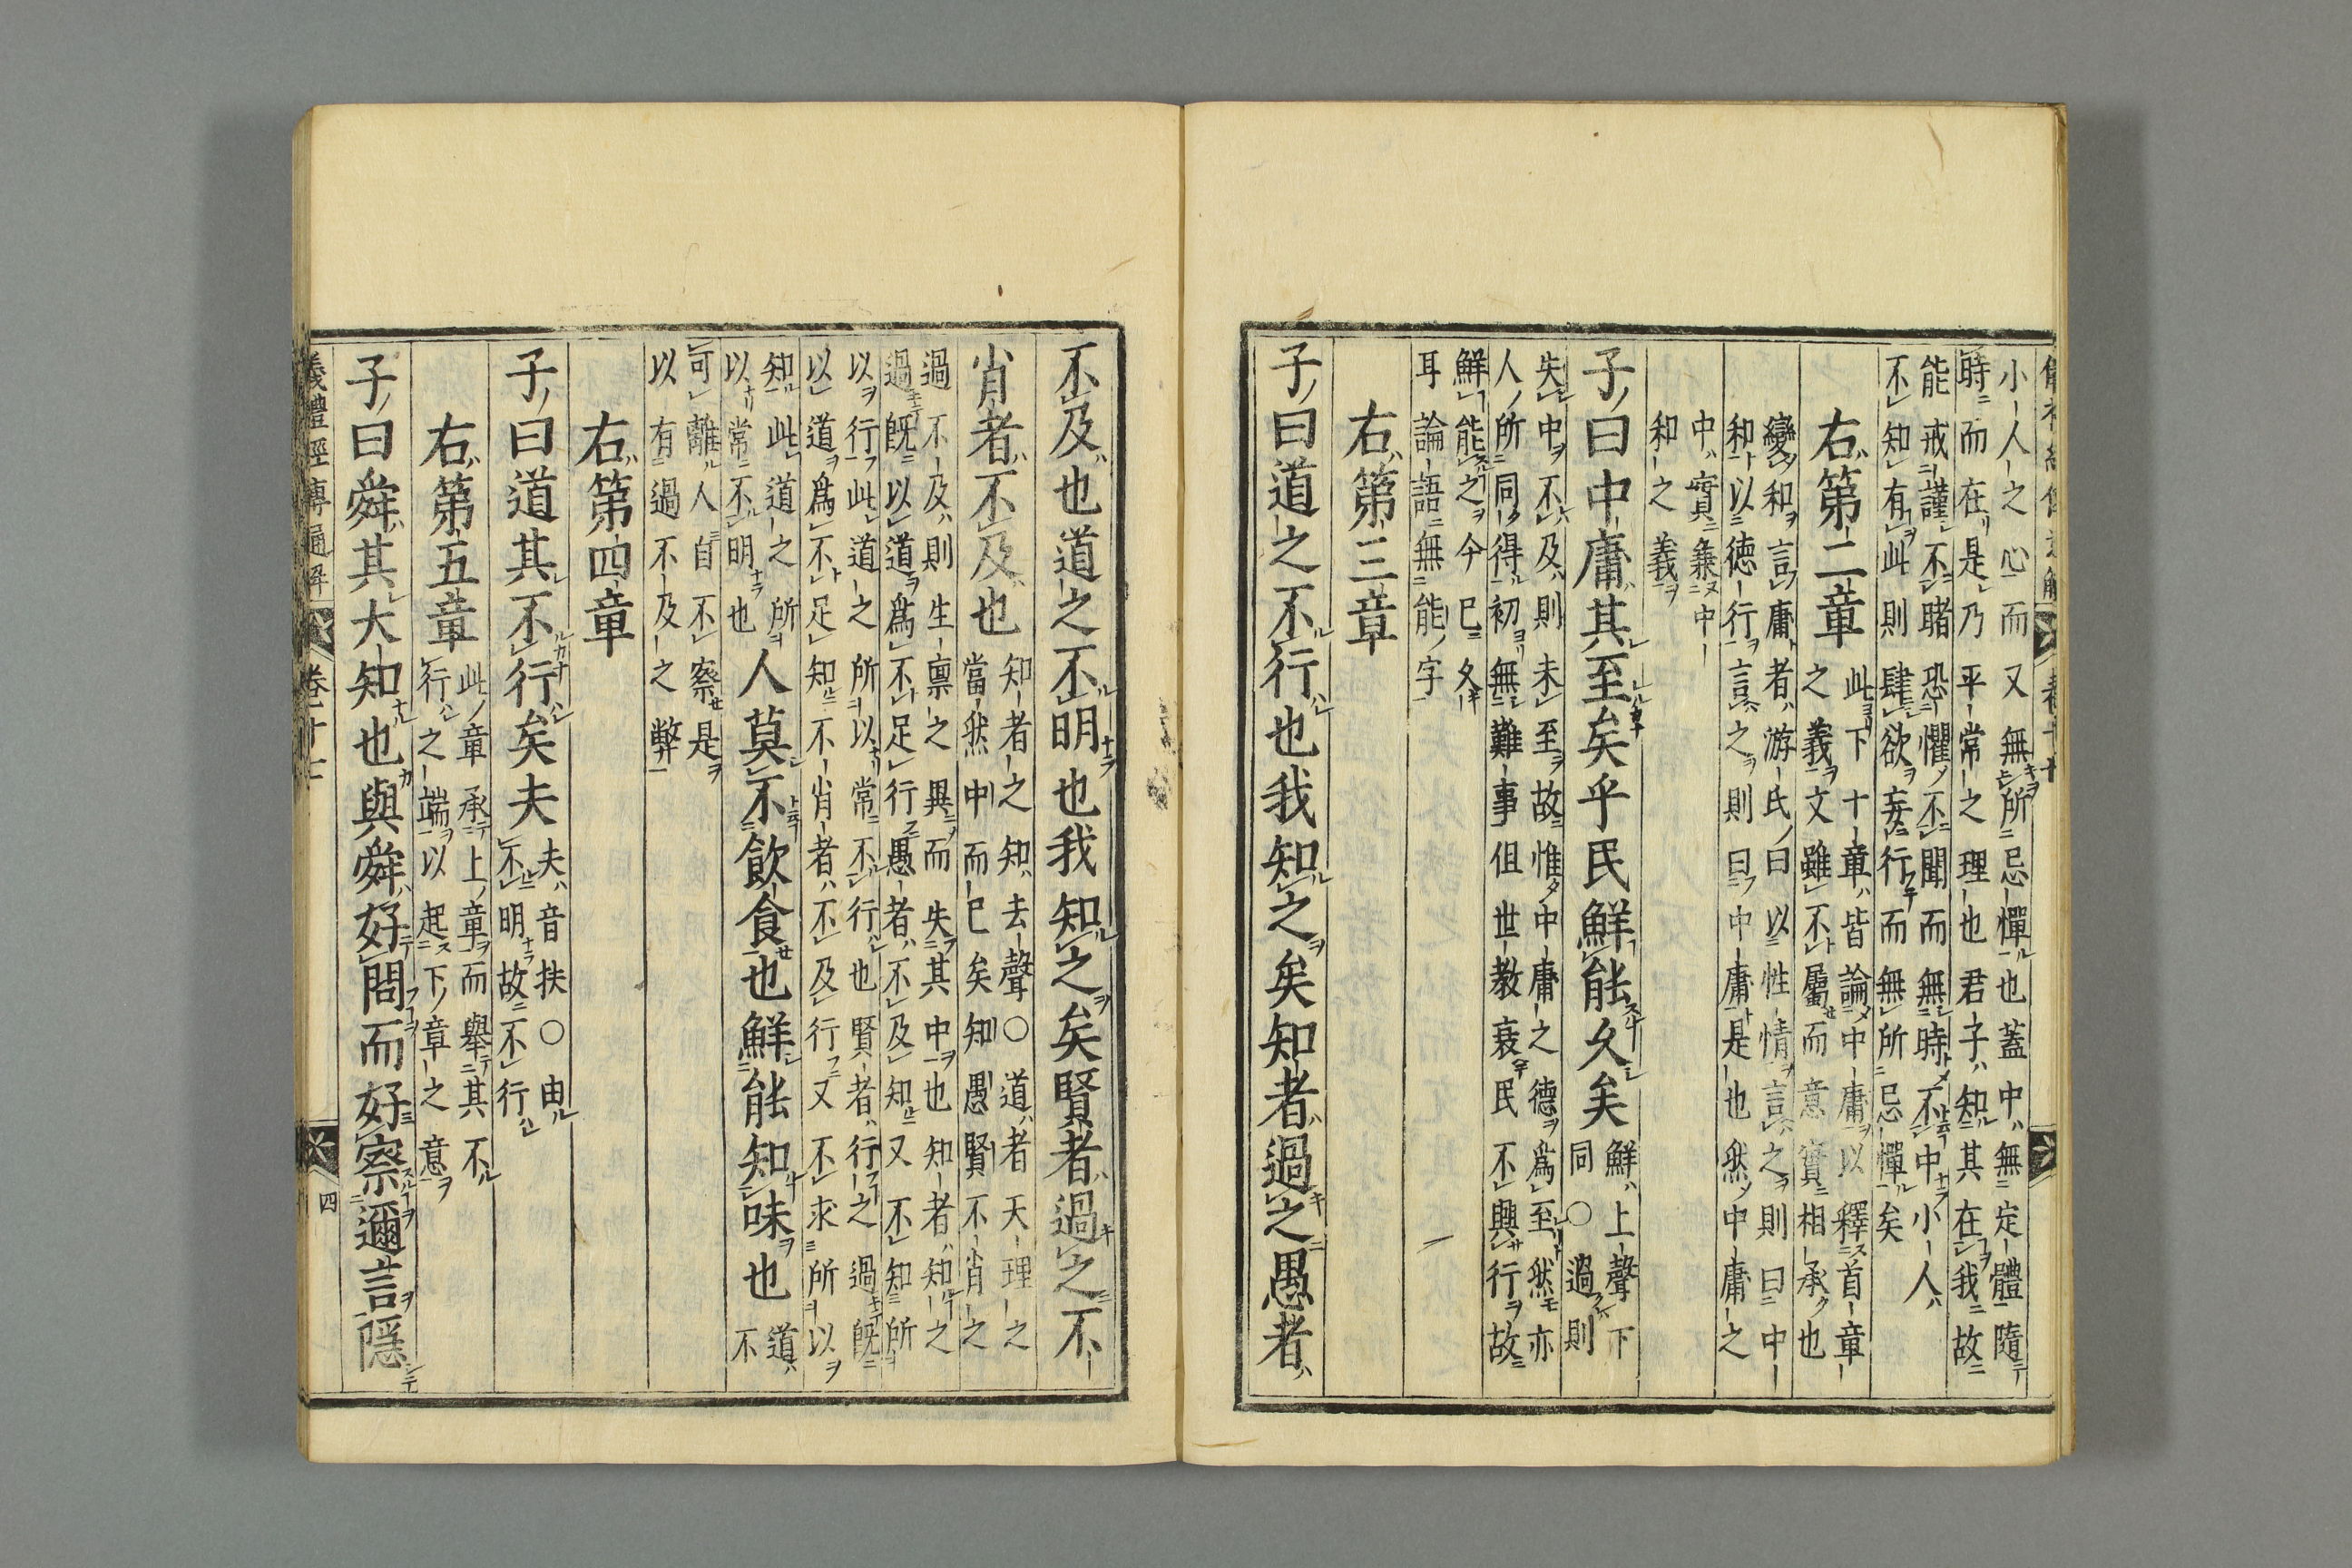 小人之心而又無所忌憚也蓋中無定體隨
時而在是乃平常之理也君子知其在我故
能戒謹不睹恐懼不聞而無時不中小人
不知有此則肆欲妄行而無所忌憚矣
右第二章
此下十章皆論中庸以釋首章
之義文雖不屬而意實相承也
變和言庸者游氏曰以性情言之則曰中
和以德行言之則曰中庸是也然中庸之
中實兼中
和之義
子曰中庸其至矣乎民鮮能久矣
鮮上聲下
同○過則
失中不及則未至故惟中庸之德爲至然亦
人所同得初無難事但世教衰民不興行故
鮮能之今已久
耳論語無能字
右第三章
子曰道之不行也我知之矣知者過之愚者
不及也道之不明也我知之矣賢者過之不
肖者不及也
知者之知去聲○道者天理之
當然中而已矣知愚賢不肖之
過不及則生稟之異而失其中也知者知之
過既以道爲不足行愚者不及知又不知所
以行此道之所以常不行也賢者行之過既
以道爲不足知不肖者不及行又不求所以
知此道之所
以常不明也
人莫不飲食也鮮能知味也
道不
可離人自不察是
以有過不及之弊
右第四章
子曰道其不行矣夫
夫音扶○由
不明故不行
右第五章
此章承上章而舉其不
行之端以起下章之意
子曰舜其大知也與舜好問而好察邇言隱
儀禮經傳通解
卷十七
四